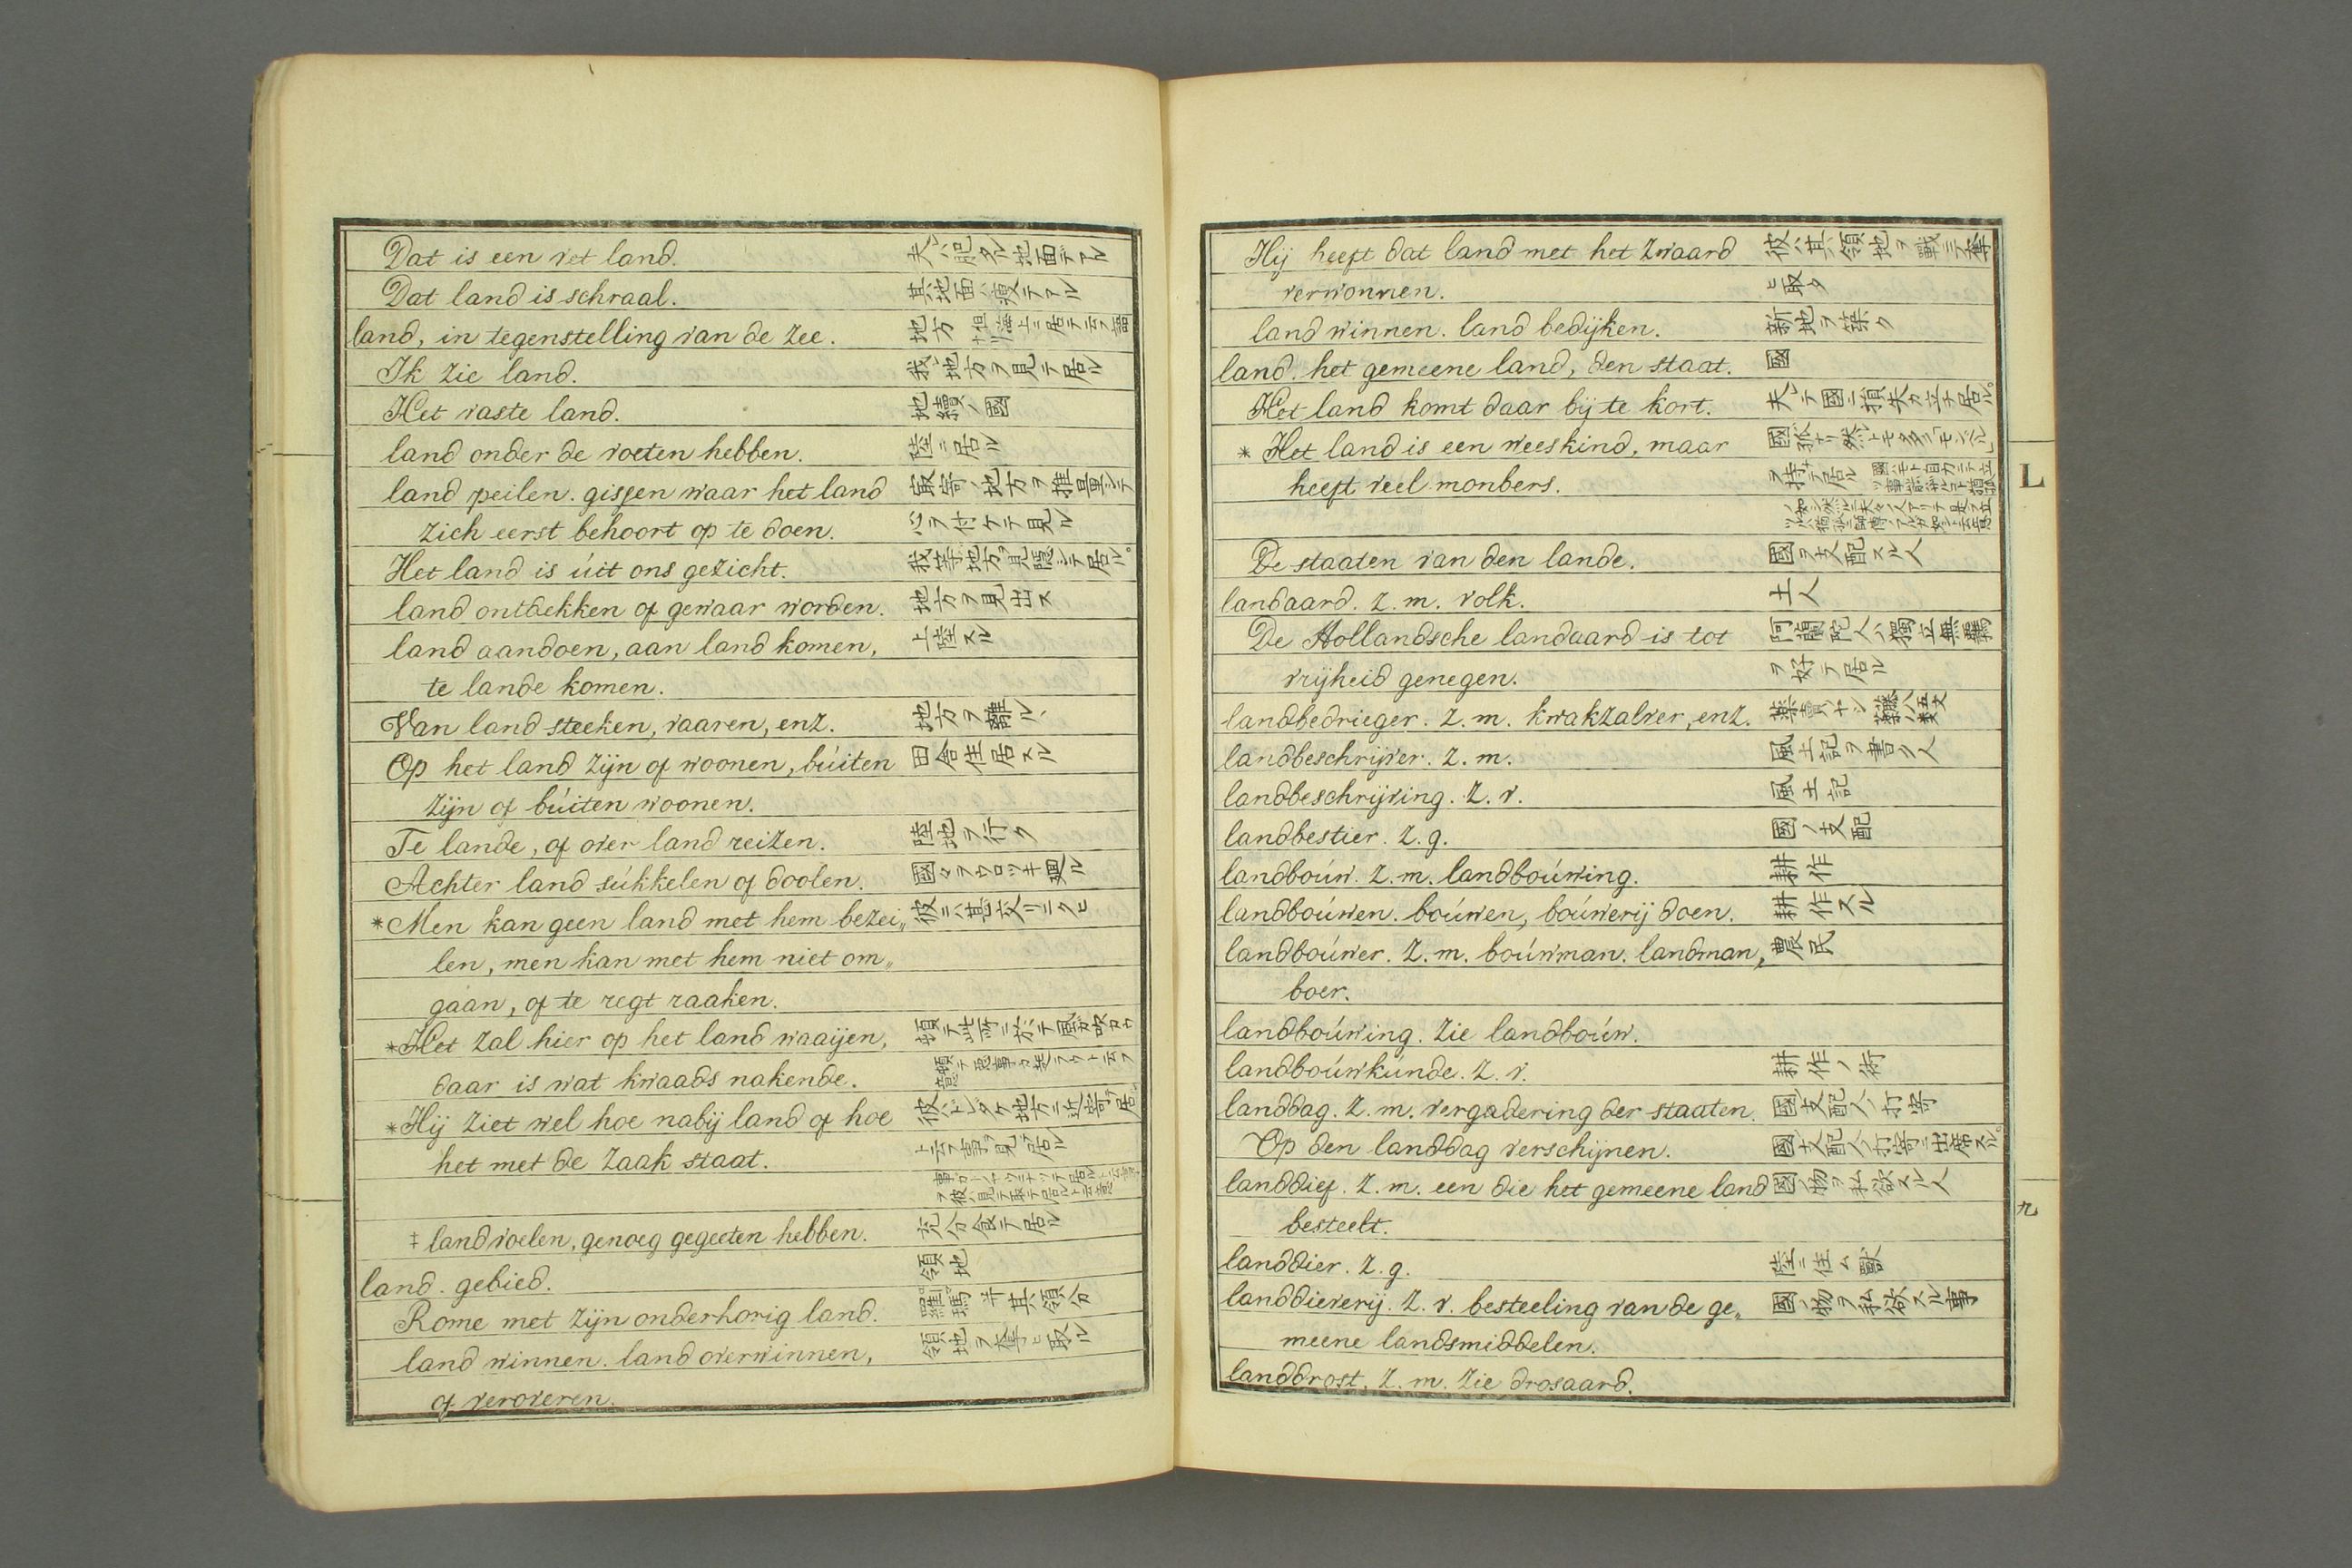 Dat is een vet land. 夫ハ肥タル地面テアル
Dat land is schraal. 其地面ハ瘦テアル
land, in tegenstelling van de zee. 地方
Ik zie land. 我ハ地方ヲ見テ居ル
Het vaste land. 地續ノ國
land onder de voeten hebben. 陸ニ居ル
land peilen. gissen waar het land 最寄ノ地方ヲ推量シテ
zich eerst behoort op te doen. 心ヲ付ケテ見ル
Het land is úit ons gezicht. 我等地方ヲ見隱シテ居ル。
land ontdekken of gewaar worden. 地方ヲ見出ス
land aandoen, aan land komen, 上陸スル
te lande komen.
Van land steeken, vaaren, enz. 地方ヲ離ル
Op het land zijn of woonen, búiten 田舎住居スル
zijn of búiten woonen.
Te lande, of over land reizen. 陸地ヲ行ク
Achter land súkkelen of doolen. 國々ヲウロツキ廻ル
*Men kan geen land met hem bezei„ 彼ニハ甚交リニクヒ
len, men kan met hem niet om„
gaan, of te regt raaken.
*Het zal hier op het land waaijen,
daar is wat kwaads nakende.
*Hij ziet wel hoe nabij land of hoe
het met de zaak staat.
‡ land voelen, genoeg gegeeten hebben. 充分食テ居ル
land. gebied. 領地
Rome met zijn onderhorig land. 羅瑪並其領分
land winnen. land overwinnen, 領地ヲ奪ヒ取ル
of veroveren.
Hij heeft dat land met het zwaard 彼ハ其領地ヲ戰ニテ奪
verwonnen. ヒ取タ
land winnen. land bedijken. 新地ヲ築ク
land. het gemeene land, den staat. 國
Het land komt daar bij te kort. 夫ニテ國ニ損失カ立テ居ル。
* Het land is een weeskind, maar
heeft veel monbers. ヲ持テ居ル
De staaten van den lande. 國ヲ支配スル人
landaard. z. m. volk. 土人
De Hollandsche landaard is tot 阿蘭陀人ハ獨立無羈
vrijheid genegen. ヲ好テ居ル
landbedrieger. z. m. kwakzalver, enz.
landbeschrijver. z. m. 風土記ヲ書ク人
landbeschrijving. z. v. 風土記
landbestier. z. g. 國ノ支配
landboúw. z. m. landboúwing. 耕作
landboúwen. boúwen, boúwerij doen. 耕作スル
landboúwer. z. m. boúwman. landman, 農民
boer.
landboúwing. zie landboúw.
landboúwkúnde. z. v. 耕作ノ術
landdag. z. m. vergadering der staaten. 國支配人ノ打寄
Op den landdag verschijnen. 國支配人ノ打寄ニ出席スル。
landdief. z. m. een die het gemeene land 國ノ物ヲ私欲スル人
besteelt.
landdier. z. g. 陸ニ住ム獸
landdieverij. z. v. besteeling van de ge„ 國ノ物ヲ私欲スル事
meene landsmiddelen.
landdrost. z. m. zie drosaard.
L
九